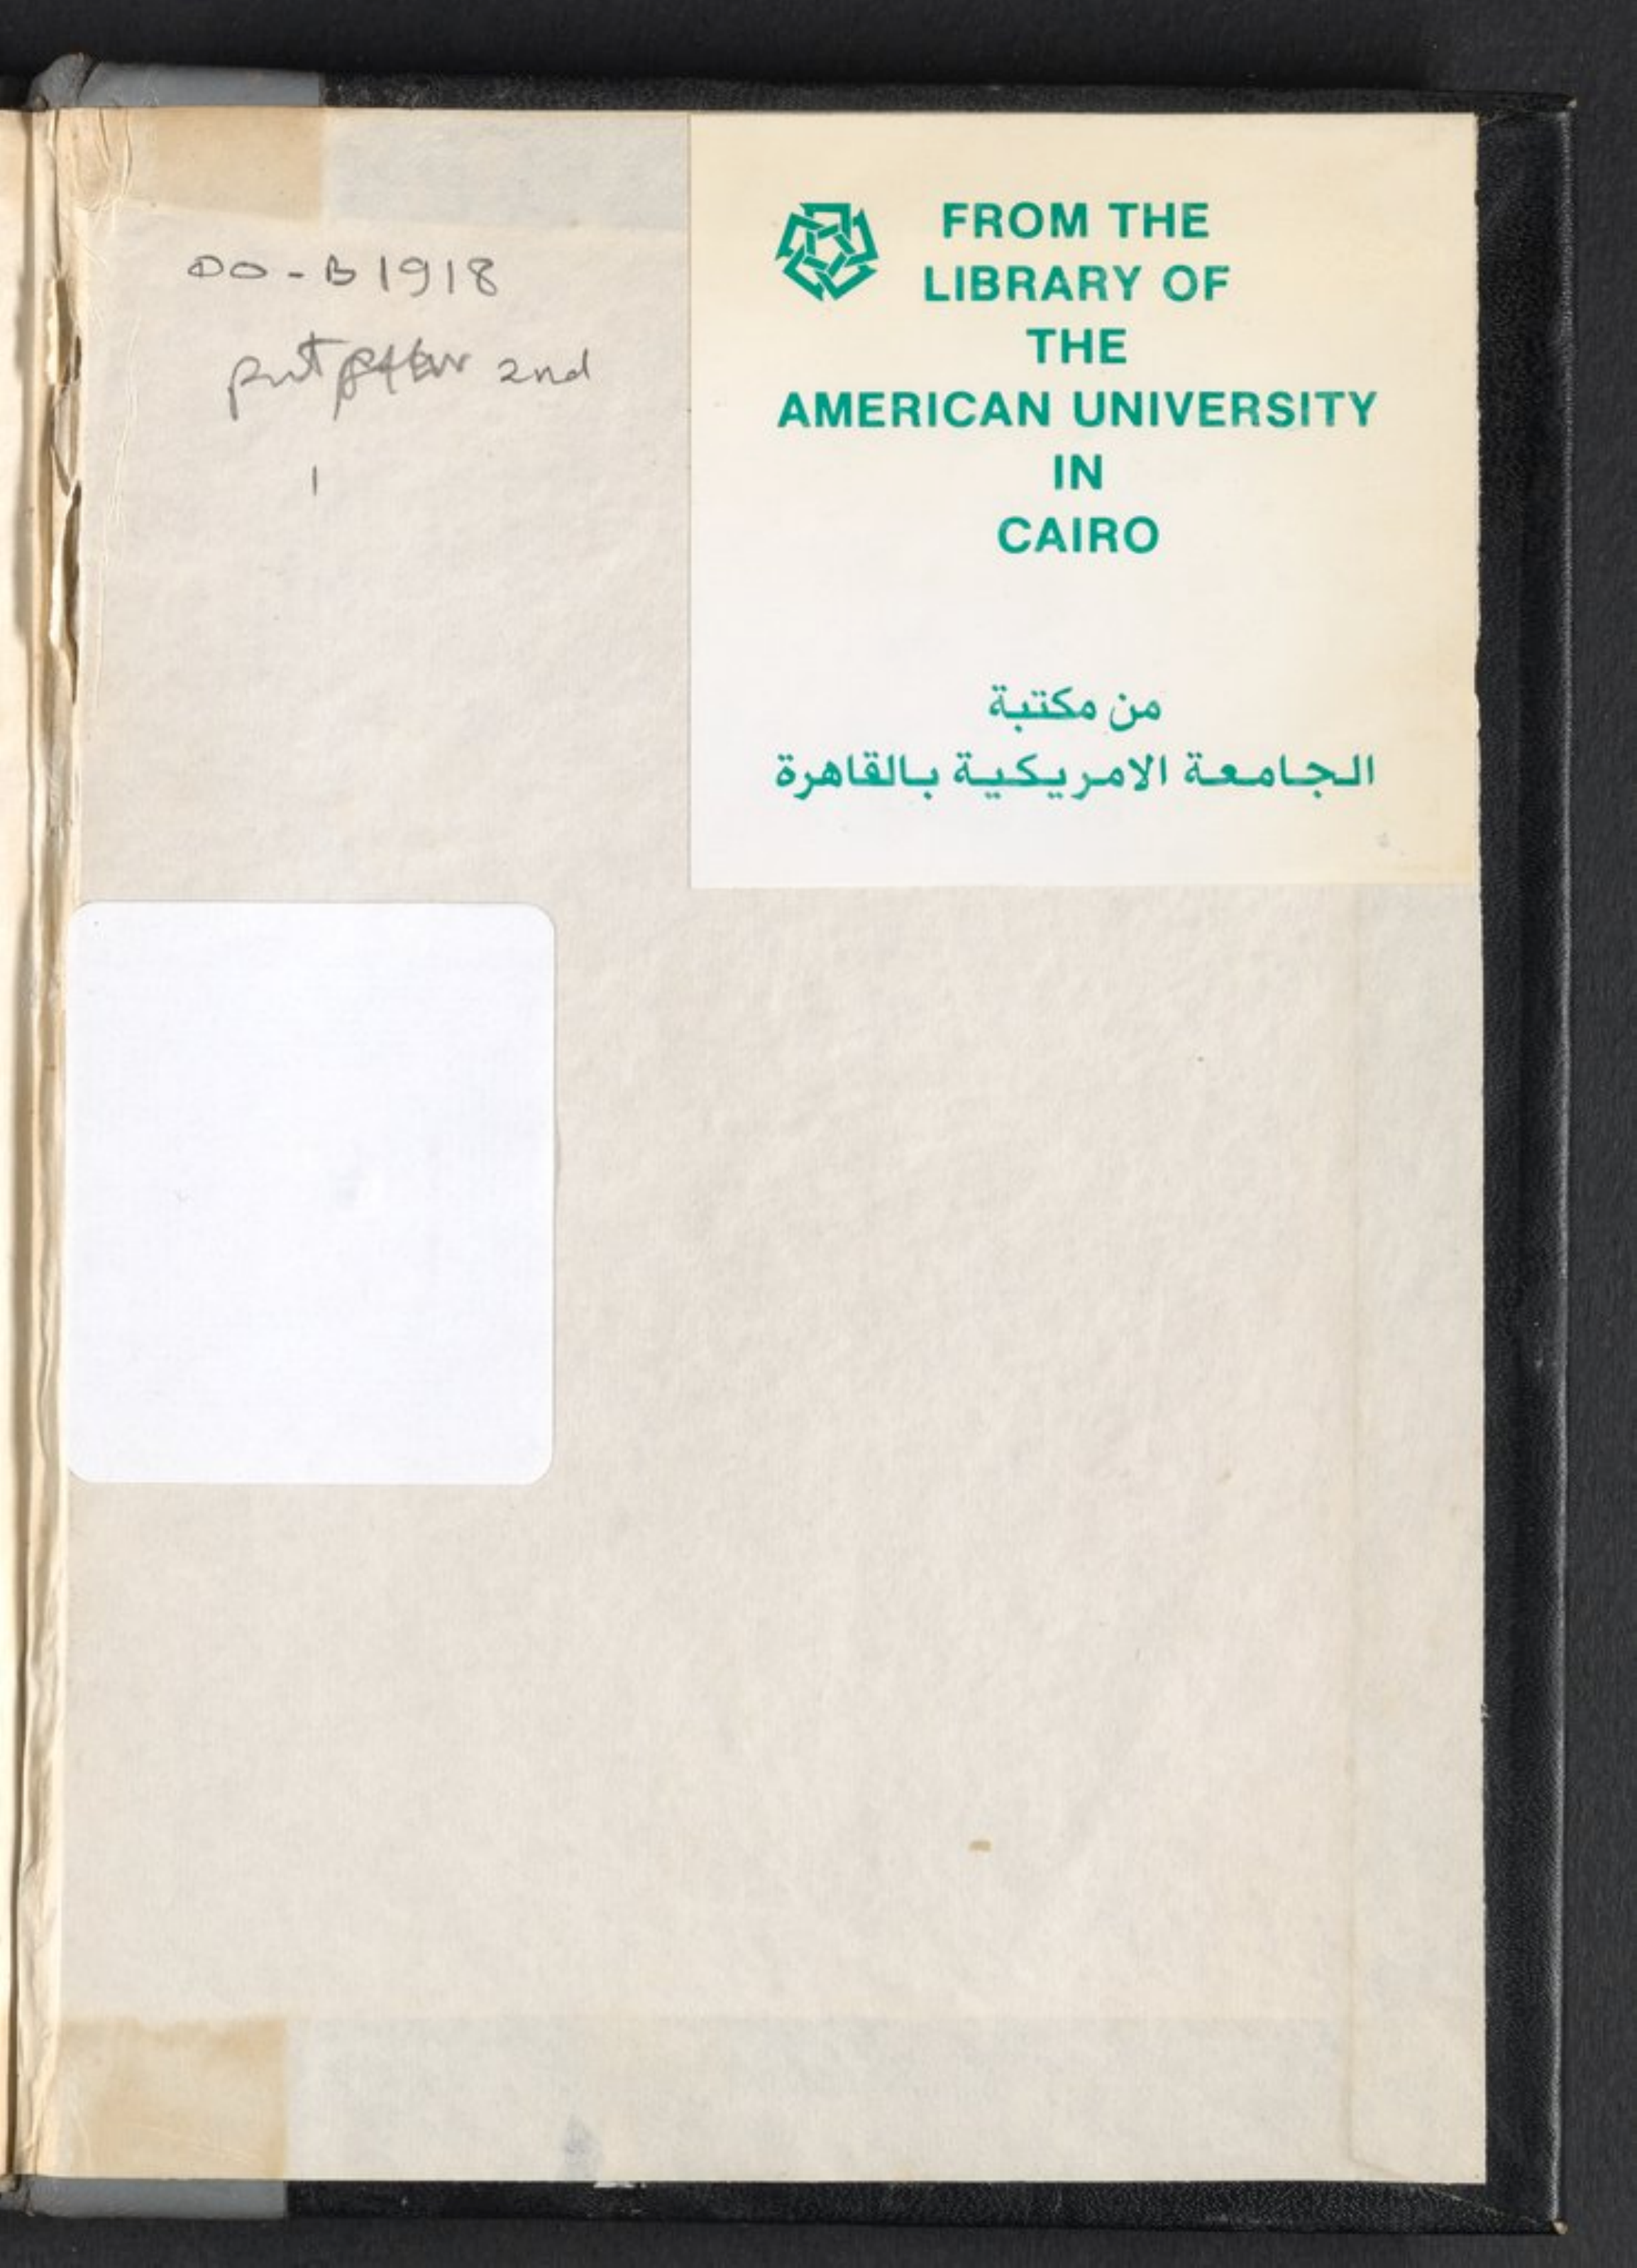 DO-B1918
put 2nd
1
FROM THE
LIBRARY OF
THE
AMERICAN UNIVERSITY
IN
CAIRO
من مكتبة
الجامعة الامريكية بالقاهرة